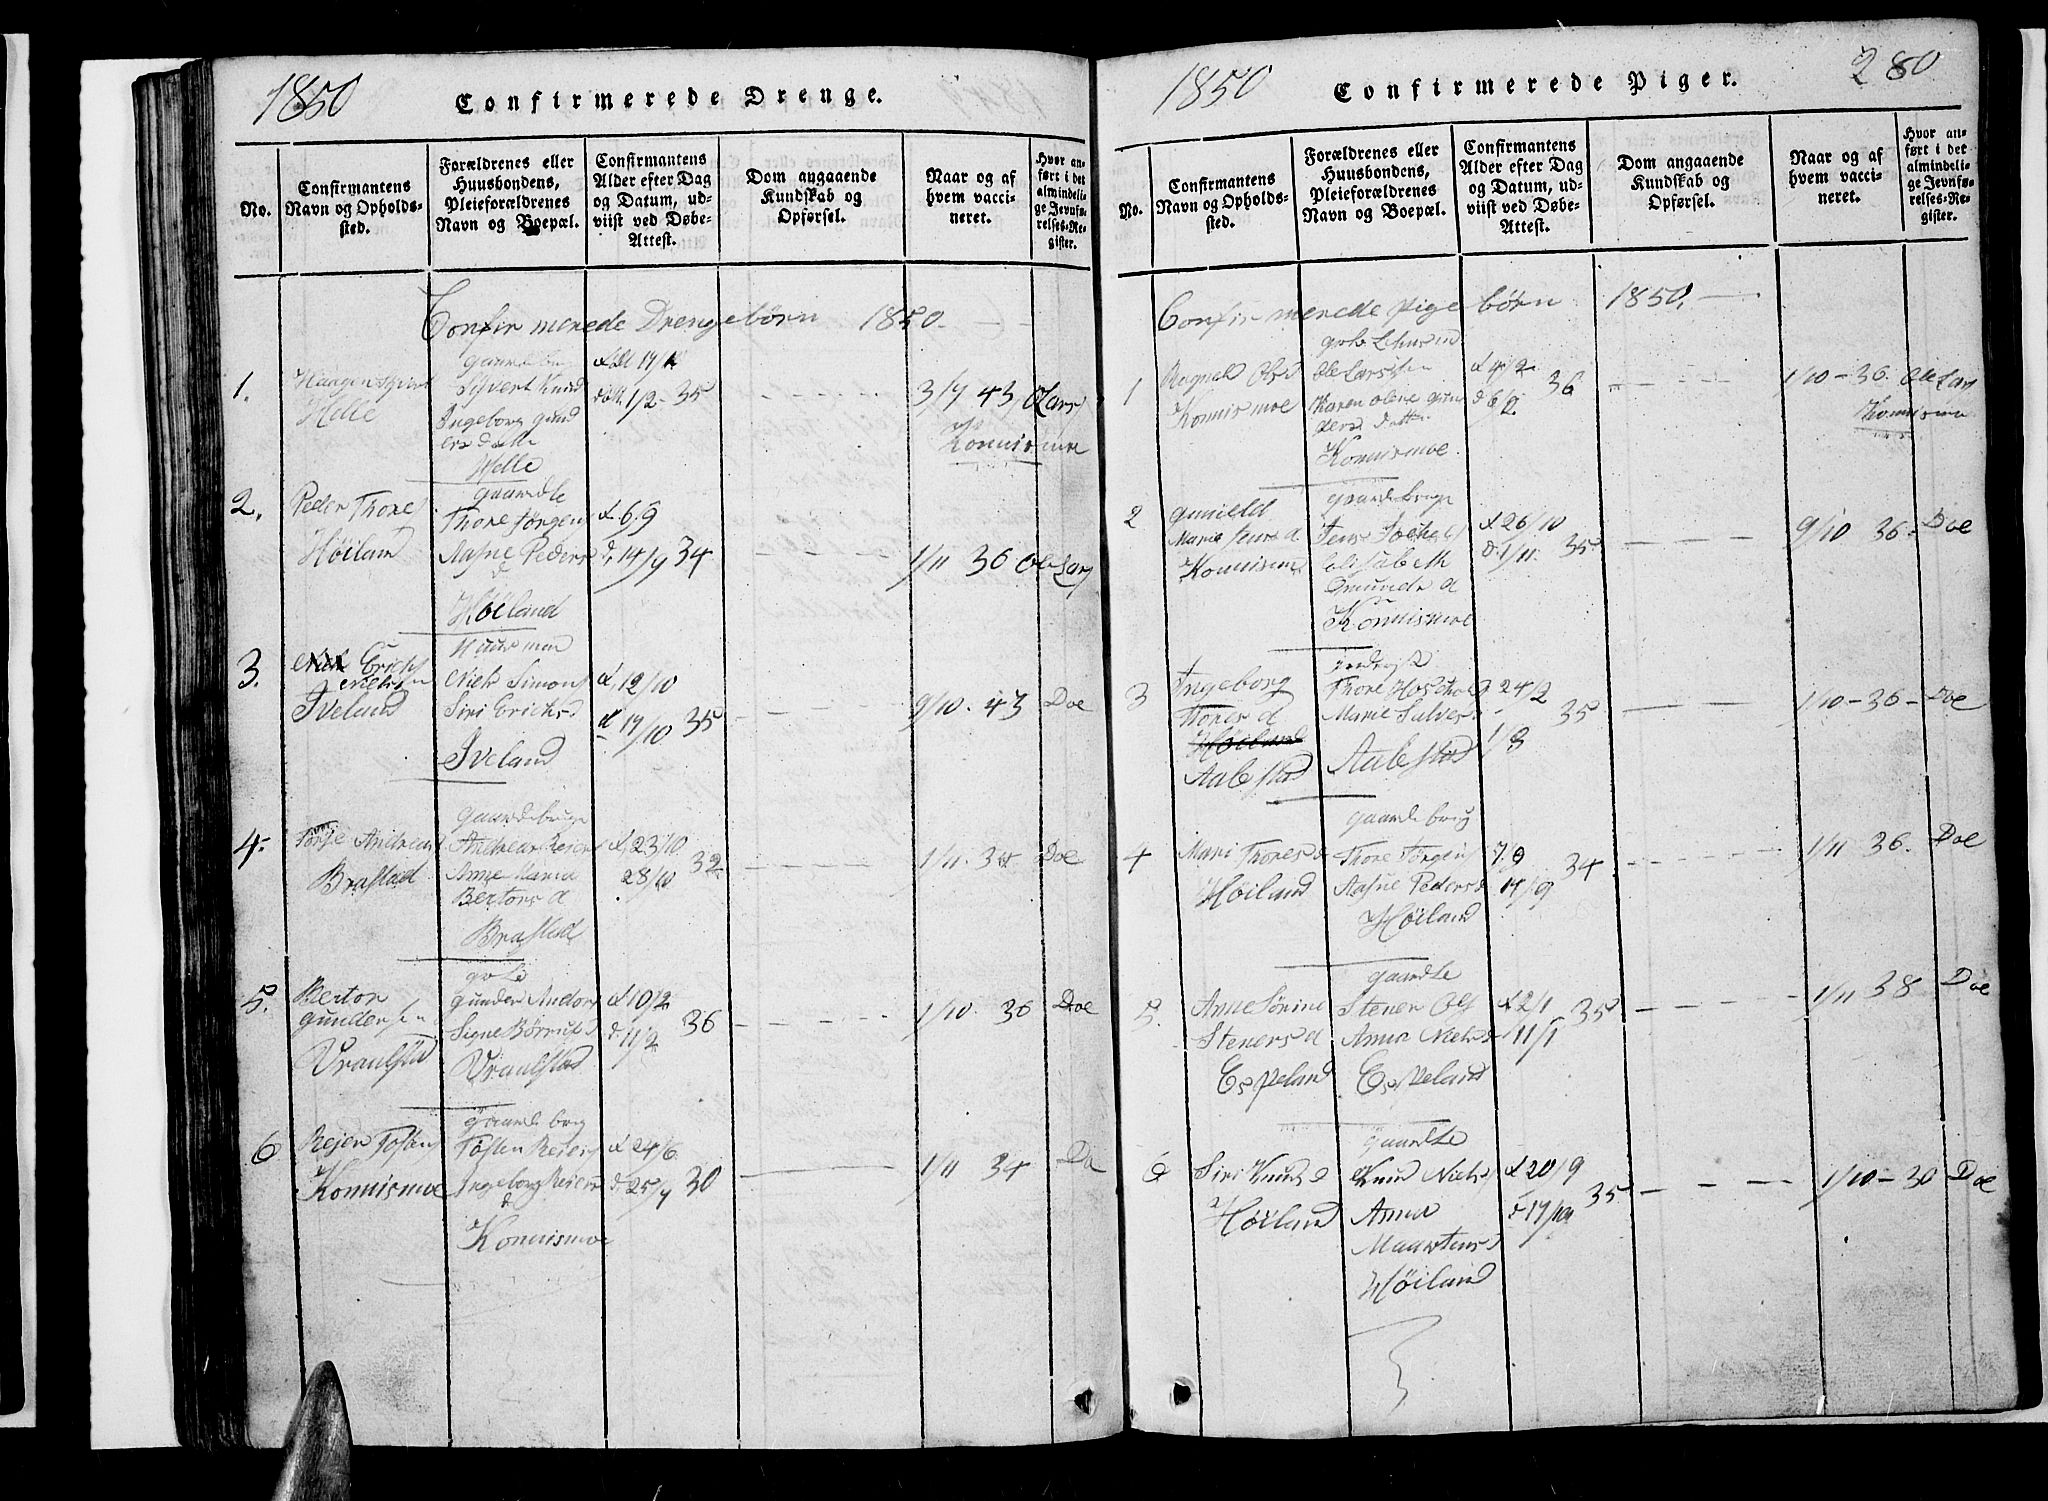 1850
Confirmerede Drenge.
No.
Confirmantens
Navn og Opholds-
sted.
Forældrenes eller
Huusbondens,
Pleieforældrenes
Navn og Boepæl.
Confirmantens
Alder efter Dag
og Datum, ud-
viist ved Døbe-
Attest.
Dom angaaende
Kundskab og
Opførsel.
Naar og af
hvem vacci-
neret.
Hvor an-
ført i det
almindeli-
ge Jevnfø-
relses-Re-
gister.
Confirmerede Drengebørn 1850.
1.
Helle
Sivert Knud
Ingeborg Gund
ers datter
Helle
1/2-35
43
Konnismoe
2.
Peder Thores
Høiland
Gaardbr
Thore Jørgens
Aasne Peders
d
Høiland
6.9
14/9 34
1/11 36 Ole Lars
3.
Erichs
Iveland
Huusman
Niels Simons
Siri Erichs d
Iveland
12/10
17/10 35
9/10. 43 Do
4.
Torje Andreas
Brastad
Gaardebruge
Andreas Reiers
Anne Maria
Bertors d
Brastad
23/10
28/10 32
1/11. 34 Do
5.
Bertor
Gundersen
Vraalstad
Gunder Andors
Signe Børruls d
Vraalstad
10/2
11/2 36
1/10. 36 Do
6
Rejer Tostens
Konnismoe
Gaardebrug
Tosten Reiers
Ingeborg Reiers
d
Konnismoe
24/6
25/7 30
1/11 34 Do
1850
Confirmerede Piger.
280
No.
Confirmantens
Navn og Opholds-
sted.
Forældrenes eller
Huusbondens,
Pleieforældrenes
Navn og Boepæl.
Confirmantens
Alder efter Dag
og Datum, ud-
viist ved Døbe-
Attest.
Dom angaaende
Kundskab og
Opførsel.
Naar og af
hvem vacci-
neret.
Hvor an-
ført i det
almindeli-
ge Jevnfø-
relses-Re-
gister.
Confirmerede Pigebørn 1850.
1
Ragnild Ols d
Konnismoe
Ole Larssen
Karen Olene Gun
ders datter
Konnismoe
4/2
6/2 36
1/10-36. Ole Lars
Konnismoe
2
Gunild
Marie Jens d
Konnismoe
Gaardebruge
Jens Jochels
Elisabeth
Omunds d
Konnismoe
26/10
1/11. 35
9/10 36- Do
3
Ingeborg
Thores d
Høiland
Aalestad
Marie Salves d
Aalestad
24/2
1/3 35
1/10-36- Do
4
Mari Thores d
Høiland
Gaardebrug
Thore Jørgens
Aasne Peders d
Høiland
7.9
14/9 34
1/11 36. Do
5.
Anne Sørine
Steners d
Espeland
Gaardbr
Stener Ols
Anna Niels d
Espeland
2/1
11/1 35
1/11 38 Do
6
Siri Knuds d
Høiland
Gaardbr
Knud Niels
Anna
Maartens d
Høiland
20/9
35
1/10-30 Do